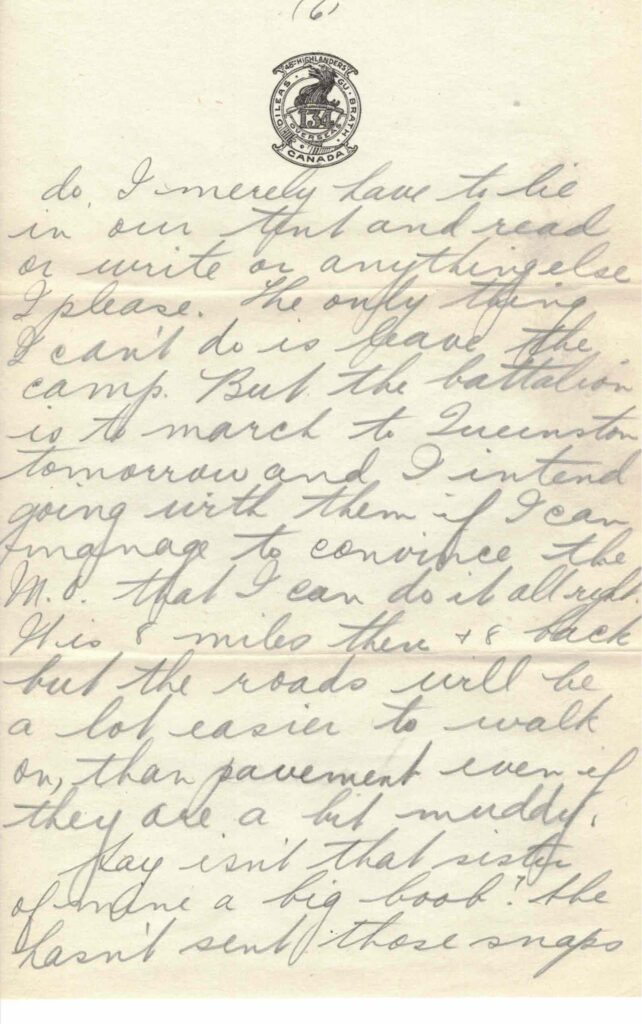 (6)
48TH HIGHLANDERS
DILEAS GU BRATH
134
OVERSEAS
CANADA
do. I merely have to lie
in our tent and read
or write or anything else
I please. The only thing
I can't do is leave the
camp. But the battalion
is to march to Queenston
tomorrow and I intend
going with them if I can
manage to convince the
M.O. that I can do it all right.
It is 8 miles there + 8 back
but the roads will be
a lot easier to walk
on, than pavement even if
they are a bit muddy.
Say isn't that sister
of mine a big boob? She
hasn't sent those snaps